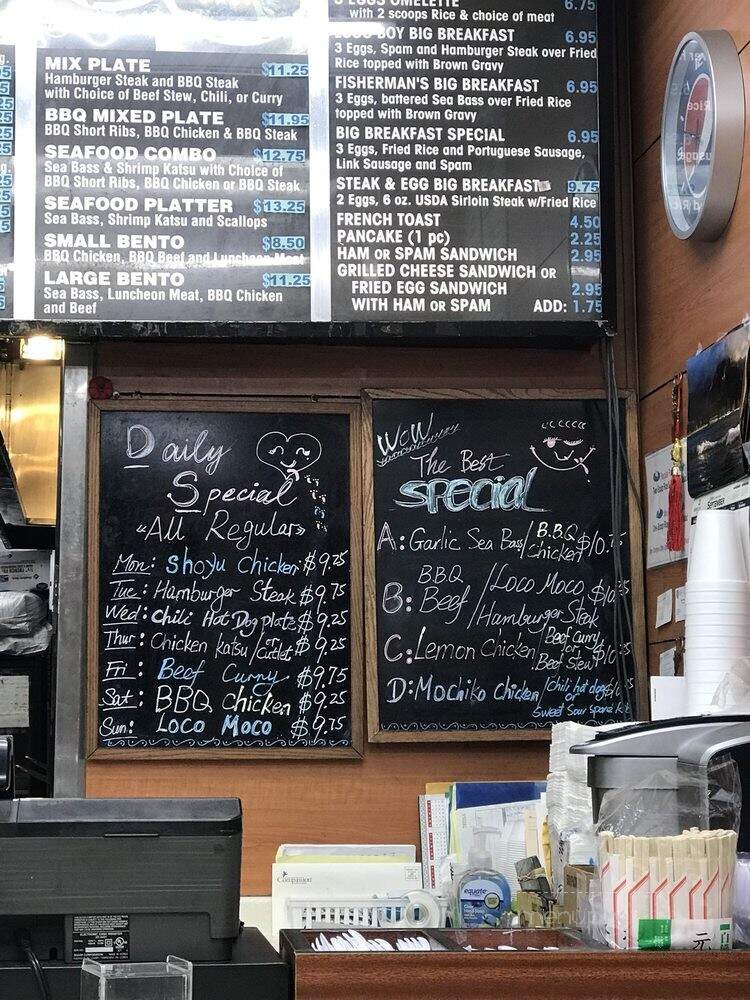 MIX PLATE $11.25
Hamburger Steak and BBQ Steak
with Choice of Beef Stew, Chili, or Curry
BBQ MIXED PLATE $11.95
BBQ Short Ribs, BBQ Chicken & BBQ Steak
SEAFOOD COMBO $12.75
Sea Bass & Shrimp Katsu with Choice of
BBQ Short Ribs, BBQ Chicken or BBQ Steak
SEAFOOD PLATTER $13.25
Sea Bass, Shrimp Katsu and Scallops
SMALL BENTO $8.50
BBQ Chicken, BBQ Beef and Luncheon Meat
LARGE BENTO $11.25
Sea Bass, Luncheon Meat, BBQ Chicken
and Beef
3 EGGS OMELETTE 6.75
with 2 scoops Rice & choice of meat
BOY BIG BREAKFAST 6.95
3 Eggs, Spam and Hamburger Steak over Fried
Rice topped with Brown Gravy
FISHERMAN'S BIG BREAKFAST 6.95
3 Eggs, battered Sea Bass over Fried Rice
topped with Brown Gravy
BIG BREAKFAST SPECIAL 6.95
3 Eggs, Fried Rice and Portuguese Sausage,
Link Sausage and Spam
STEAK & EGG BIG BREAKFAST 9.75
2 Eggs, 6 oz. USDA Sirloin Steak w/Fried Rice
FRENCH TOAST 4.50
PANCAKE (1 pc) 2.25
HAM OR SPAM SANDWICH 2.95
GRILLED CHEESE SANDWICH OR
FRIED EGG SANDWICH 2.95
WITH HAM OR SPAM ADD: 1.75
Daily
Special
«All Regular»
Mon: Shoyu Chicken $9.25
Tue: Hamburger Steak $9.75
Wed: Chili Hot Dog plate $9.25
Thur: Chicken katsu/or Cutlet $9.25
Fri: Beef Curry $9.75
Sat: BBQ Chicken $9.25
Sun: Loco Moco $9.75
WOW
The Best
SPECIAL
A: Garlic Sea Bass/B.B.Q Chicken
B: B.B.Q Beef/Loco Moco/Hamburger Steak
C: Lemon Chicken/Beef Curry or Beef Stew
D: Mochiko Chicken/Chili hot dog or
Sweet Sour
Companion
equate
元